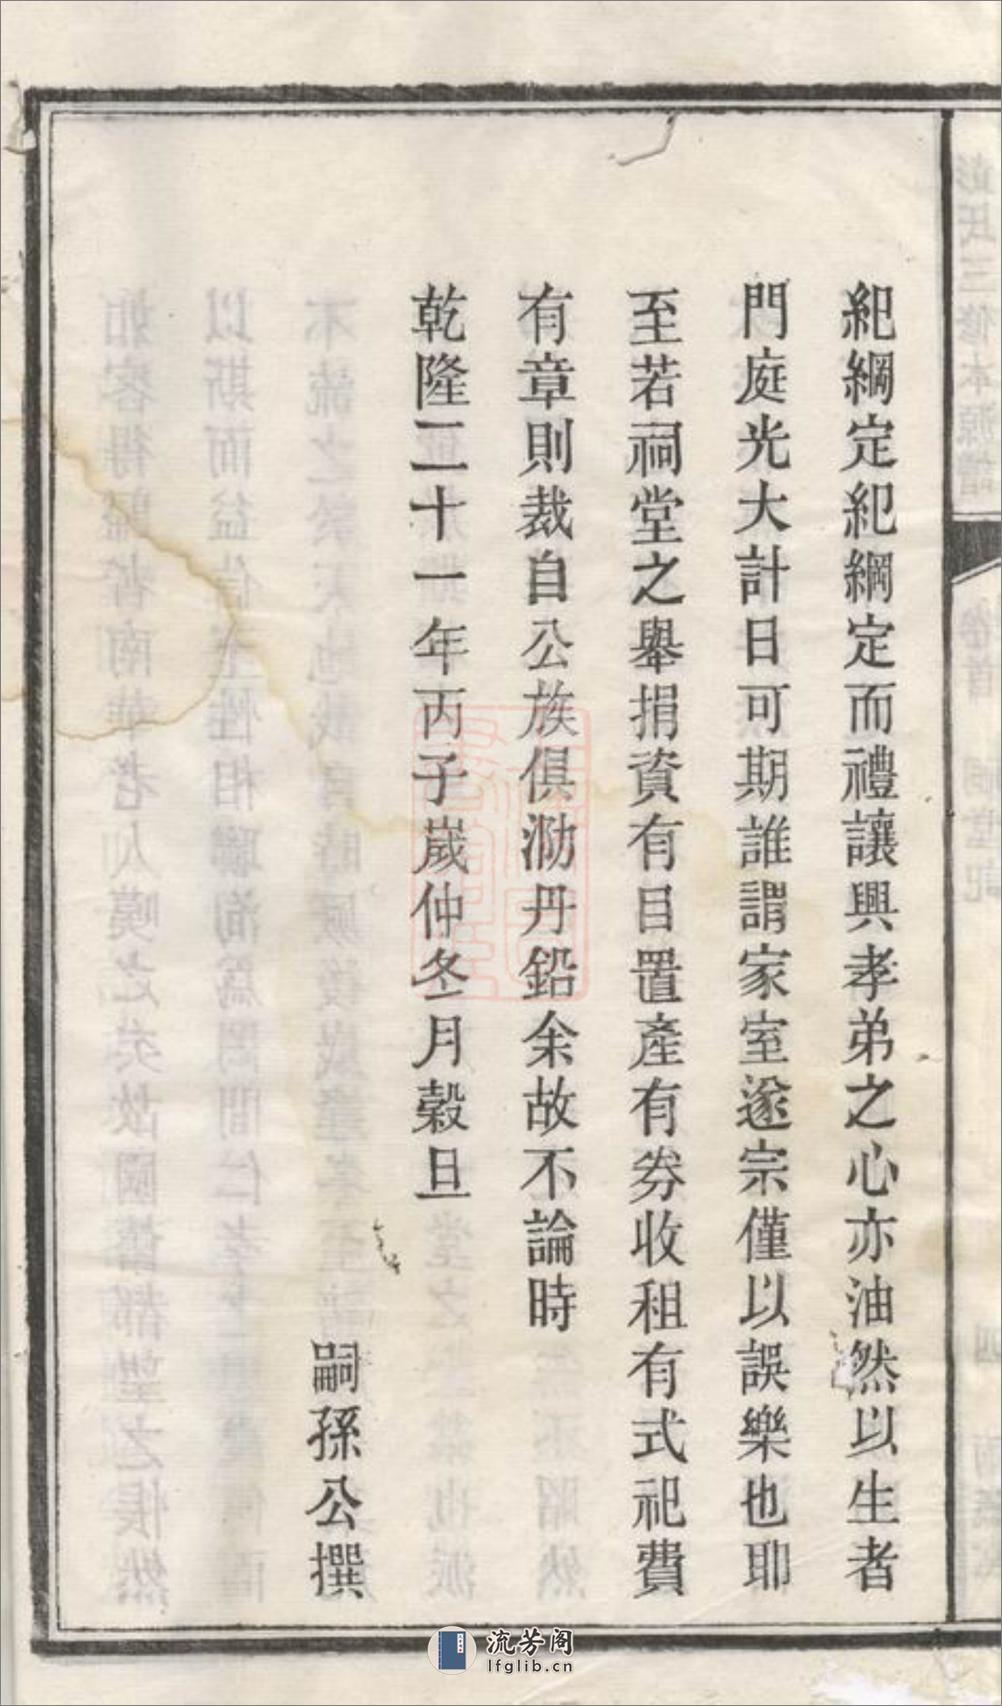 紀綱定紀綱定而禮讓興孝弟之心亦油然以生者
門庭光大計日可期誰謂家室遂宗僅以誤樂也耶
至若祠堂之舉捐資有目置產有券收租有式祀費
有章則裁自公族俱泐丹鉛余故不論時
乾隆二十一年丙子歲仲冬月穀旦
嗣孫公撰
流芳阁
lfglib.cn